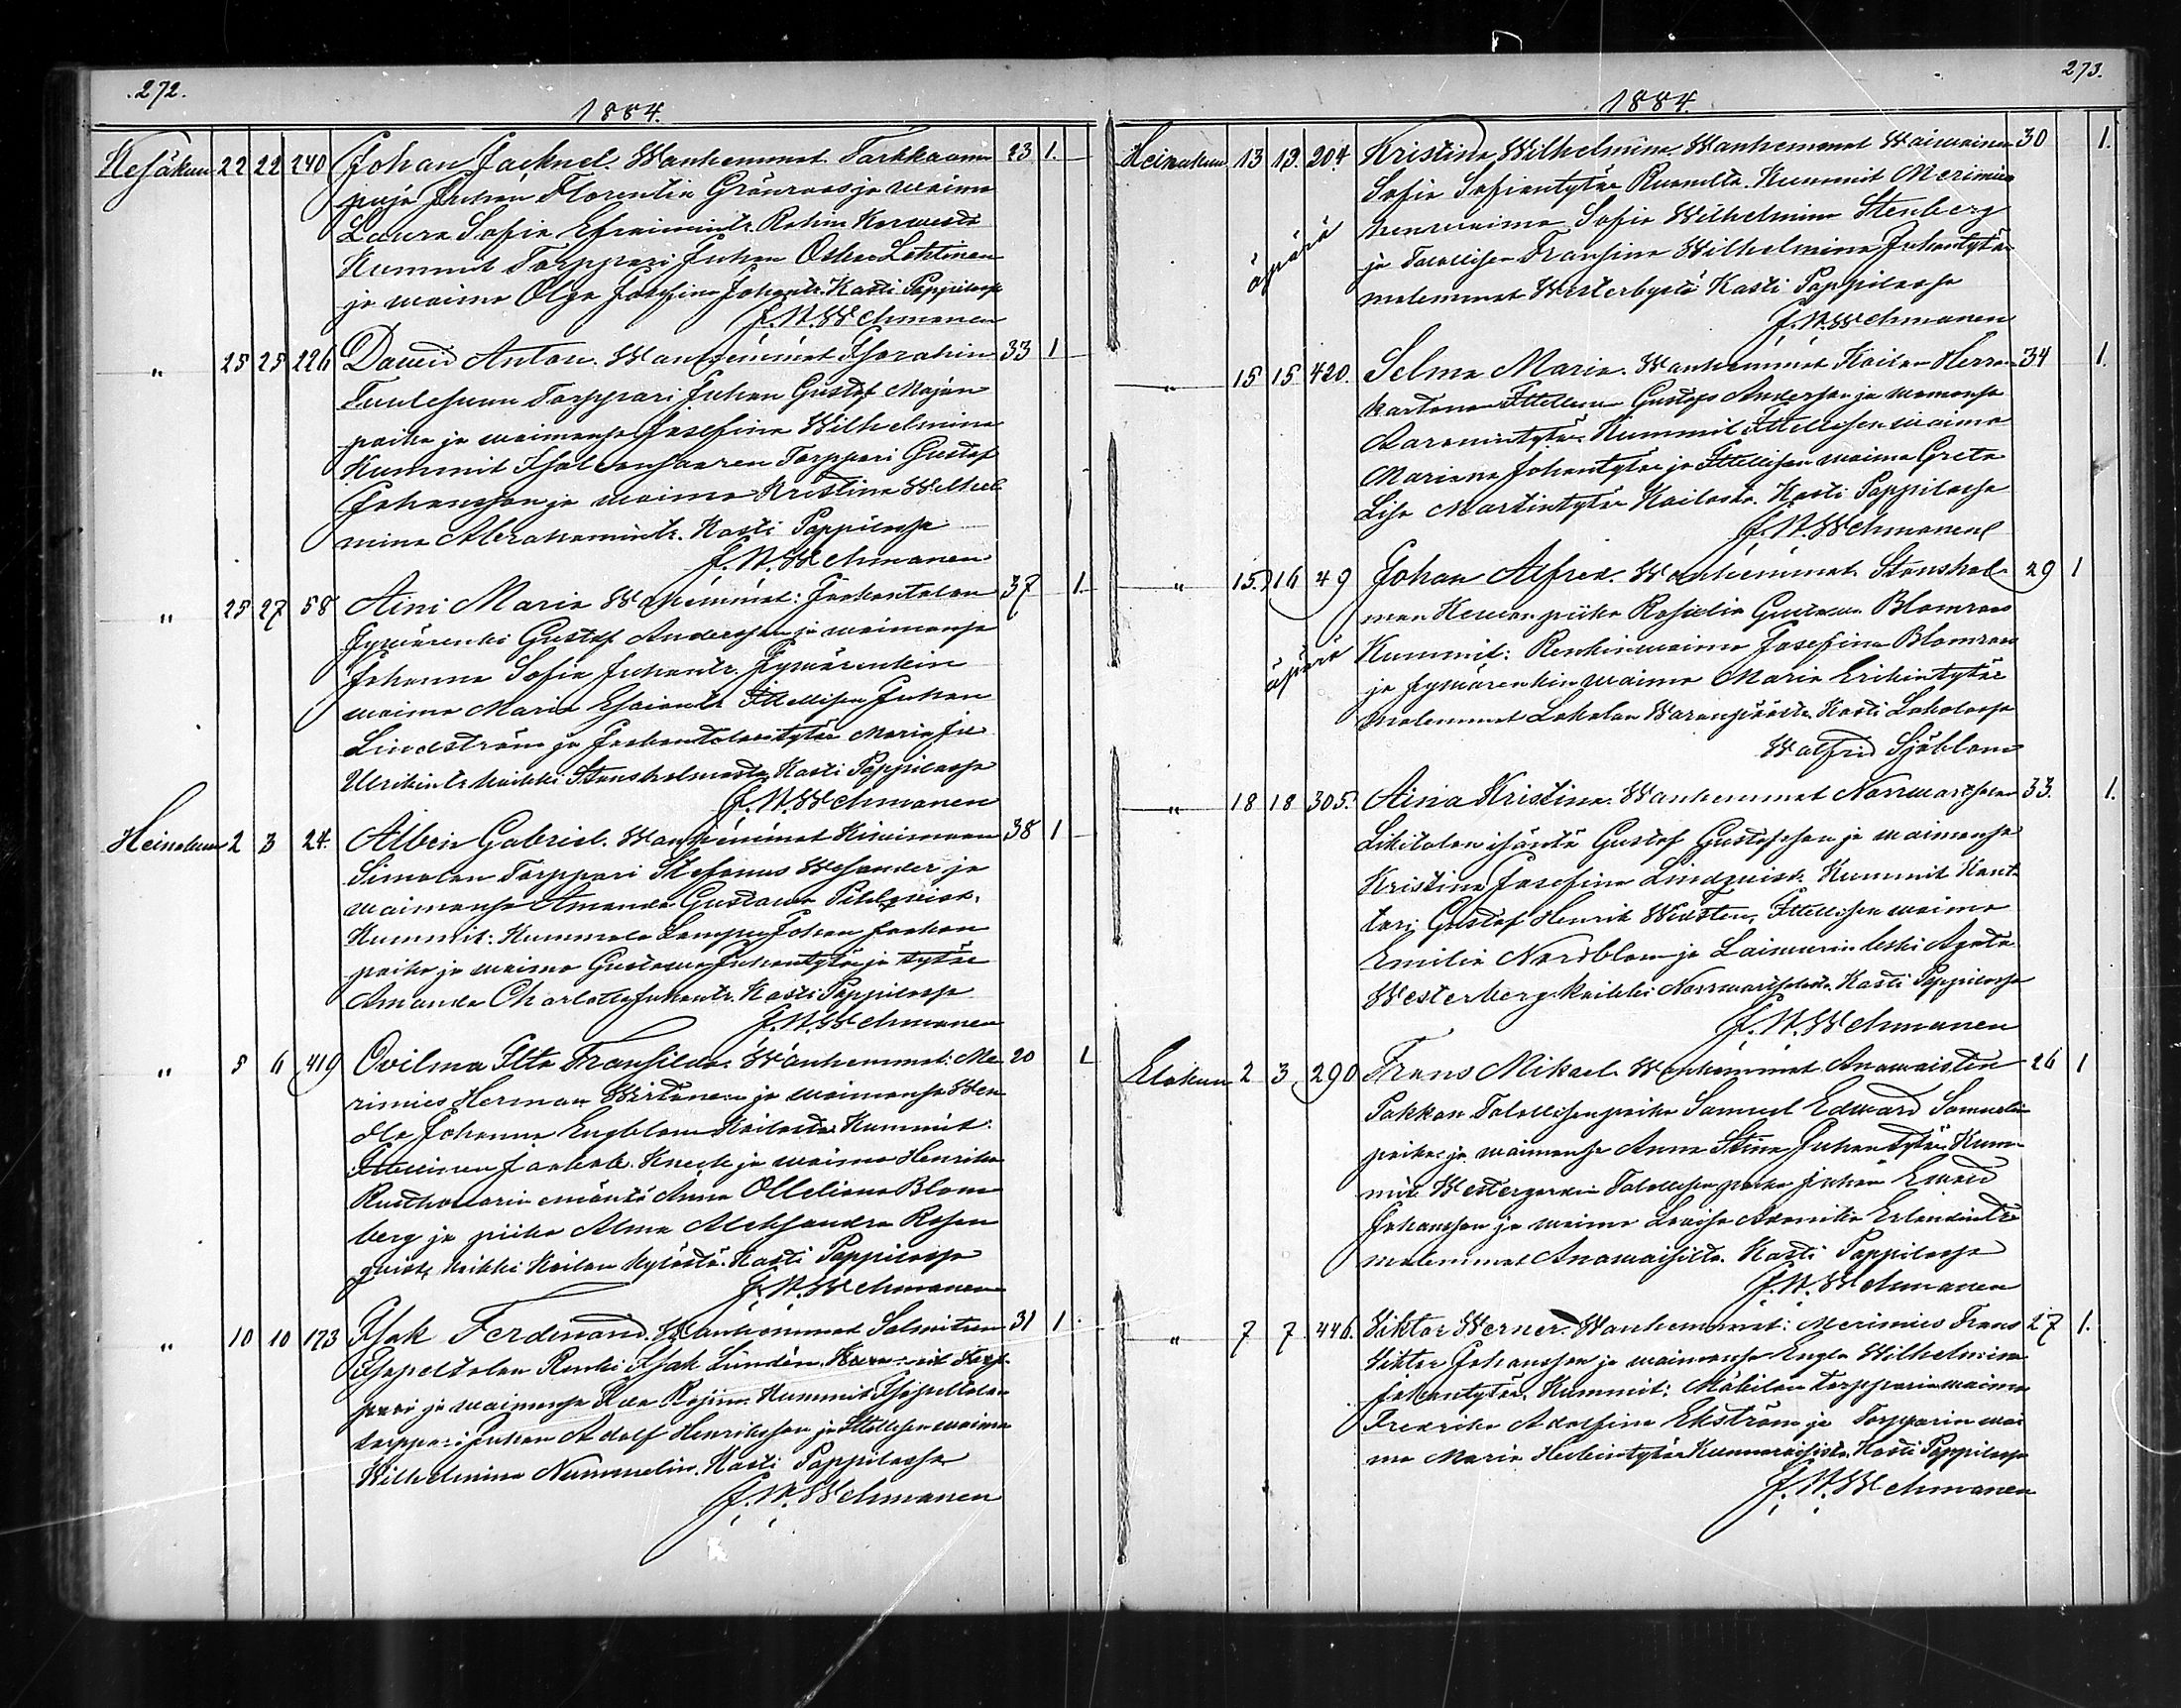 272.
1884.
Kesäkuu 22 22 240 Johan Jacknel. Wanhemmat. Tarkkaam 23 1.
poja Juhan Florentin Grönroos ja waimo
Laura Sofia Efraimintr. Rohin Korwesta
Kummit Torppari Juhan Oskar Lehtinen
ja waimo Olga Josefina Johantr. Kasti Pappilassa
J. W. Wehmanen
" 25 25 226 David Anton. Wanhemmat 33 1
Torppari Juhan Gustaf Majan
poika ja waimonsa Josefina Wilhelmina
Kummit Torppari Gustaf
Johansson ja waimo Kristina Wilhel
mina Abrahamintr. Kasti Pappilassa
J. W. Wehmanen
" 25 27 58 Aini Maria Wanhemmat: Jaakontalon 37 1.
Jywärenki Gustaf Andersson ja waimonsa
Johanna Sofia Juhantr. Jywärenkin
waimo Maria Esaiantr. Ittellisen Juhan
Lindström ja Jaakontalon tytär Maria
Ulrikintr. kaikki Stensholmasta Kasti Pappilassa
J. W. Wehmanen
Heinakuu 2 3 24. Albin Gabriel. Wanhemmat Kiwimaan 38 1
Simolan Torppari Stefanus Wesander ja
waimonsa Amanda Gustawa Pihlqwist.
Kummit: Kummela Lamppu Johan Jaakon
poika ja waimo Gustawa Juhantytär ja tytär
Amanda Charlotta Juhantr. Kasti Pappilassa
J. W. Wehmanen
" 5 6 419 Ovilma Itta Fransiska. Wanhemmat: Me 20 1
rimies Herman Wirtanen ja waimonsa Wen
dla Johanna Engblom Kailosta. Kummit:
Ittellinen Jaakob. ja waimo Henrika
Rusthollarin emäntä Anna Ottiliana Blom
berg ja piika Alma Aleksandra Rosen
qwist, kaikki Kailon kylästä. Kasti Pappilassa
J. W. Wehmanen
" 10 10 173 Isak Ferdinand. Wanhemmat Salmitun 31 1.
Renki Isak Lundén. Torp
pari ja waimonsa Rosina. Kummit
torppari Juhan Adolf Henriksson ja Ittellisen waimo
Wilhelmina Nummelin. Kasti Pappilassa
J. W. Wehmanen
273.
1884.
Heinakuu 13 13. 204 Kristina Wilhelmina Wanhemmat Waiwainen 30 1.
Sofia Sofiantytär Kummit Merimie
henwaimo Sofia Wilhelmina Stenberg
äpärä
ja Talollisen Fransina Wilhelmina Juhantytär
molemmat Westerbystä Kasti Pappilassa
J. W. Wehmanen
" 15 15 420. Selma Maria. Wanhemmat Kailon Herran 34 1.
kartanon Ittellinen Gustaf Andersson ja waimonsa
Aaronintytär. Kummit Ittellisen waimo
Mariana Johantytär ja Ittellisen waimo Greta
Lisa Martintytär Kailosta. Kasti Pappilassa
J. W. Wehmanen
" 15. 16 49 Johan Alfred. Wanhemmat. Stenshol 29 1
man Herwan piika Rosalia Gustawa Blomroos
äpärä
Kummit: Renkinwaimo Josefina Blomroos
ja Jywärenkin waimo Maria Erikintytär
molemmat Lokalan Waranpäästä Kasti Lokalassa
Walfrid Sjöblom
" 18 18 305. Aina Kristina. Wanhemmat 33. 1.
isäntä Gustaf Gustafsson ja waimonsa
Kristina Josefina Lindqwist. Kummit Kant
tori Gustaf Henrik Ittellisen waimo
Emilia Nordblom ja leski Agata
Westerberg kaikki Kasti Pappilassa
J. W. Wehmanen
Elokuu 2 3 290 Frans Mikael. Wanhemmat Anawaisten 26 1
Pakkan Talollisenpoika Samuel Edward Samuelin
poika ja waimonsa Anna Stina Juhantytär. Kum
mit Westergardin Talollisen poika Juhan Ewald
Johansson ja waimo Lowisa Erlandintr
molemmat Anawaisilta. Kasti Pappilassa
J. W. Wehmanen
" 7 7. 446. Viktor Werner. Wanhemmat: Merimies Frans 27 1.
Viktor Johansson ja waimonsa Engla Wilhelmina
Johantytär. Kummit: Mäkilan torpparin waimo
Fredrika Adolfina Ekström ja Torpparin wai
mo Maria Heikintytär Kasti Pappilassa
J. W. Wehmanen